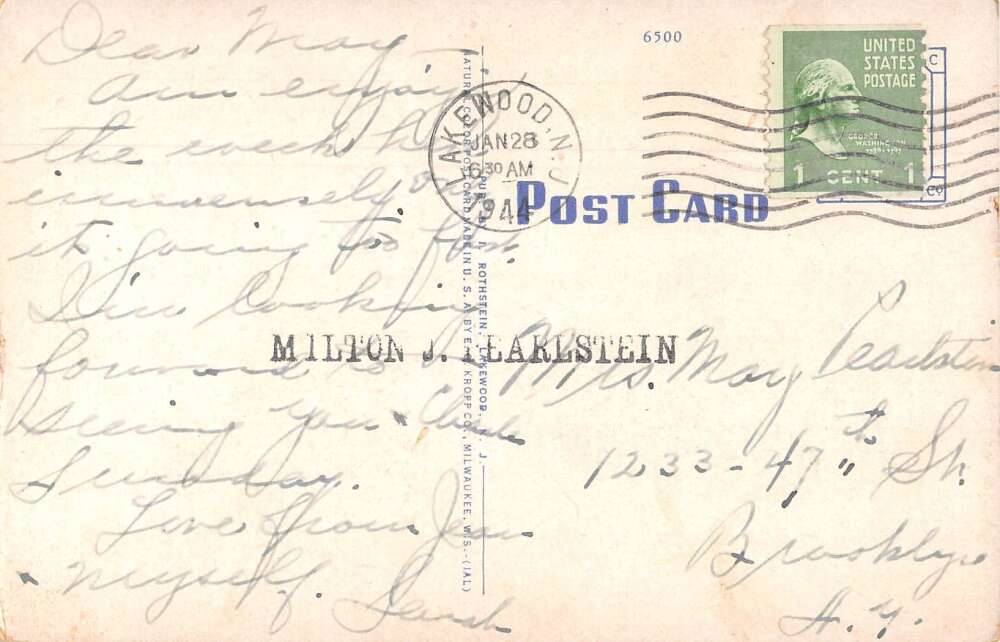 Dear May -
Am enjoying
the week here
immensely only
it's going too fast.
I'm looking
forward to
seeing you
Sunday.
Love from Jean
myself. Sarah
6500
UNITED
STATES
POSTAGE
GEORGE
WASHINGTON
1789-1797
1 CENT 1
LAKEWOOD, N.J.
JAN 28
6 30 AM
1944
POST CARD
NATURAL COLOR POST CARD MADE IN U. S. A. BY E. C. KROPP CO., MILWAUKEE, WIS.-(IAL)
PUB. BY A. ROTHSTEIN, LAKEWOOD, N. J.
MILTON J. PEARLSTEIN
Mrs. May Pearlstein
1233-47th St.
Brooklyn
N.Y.